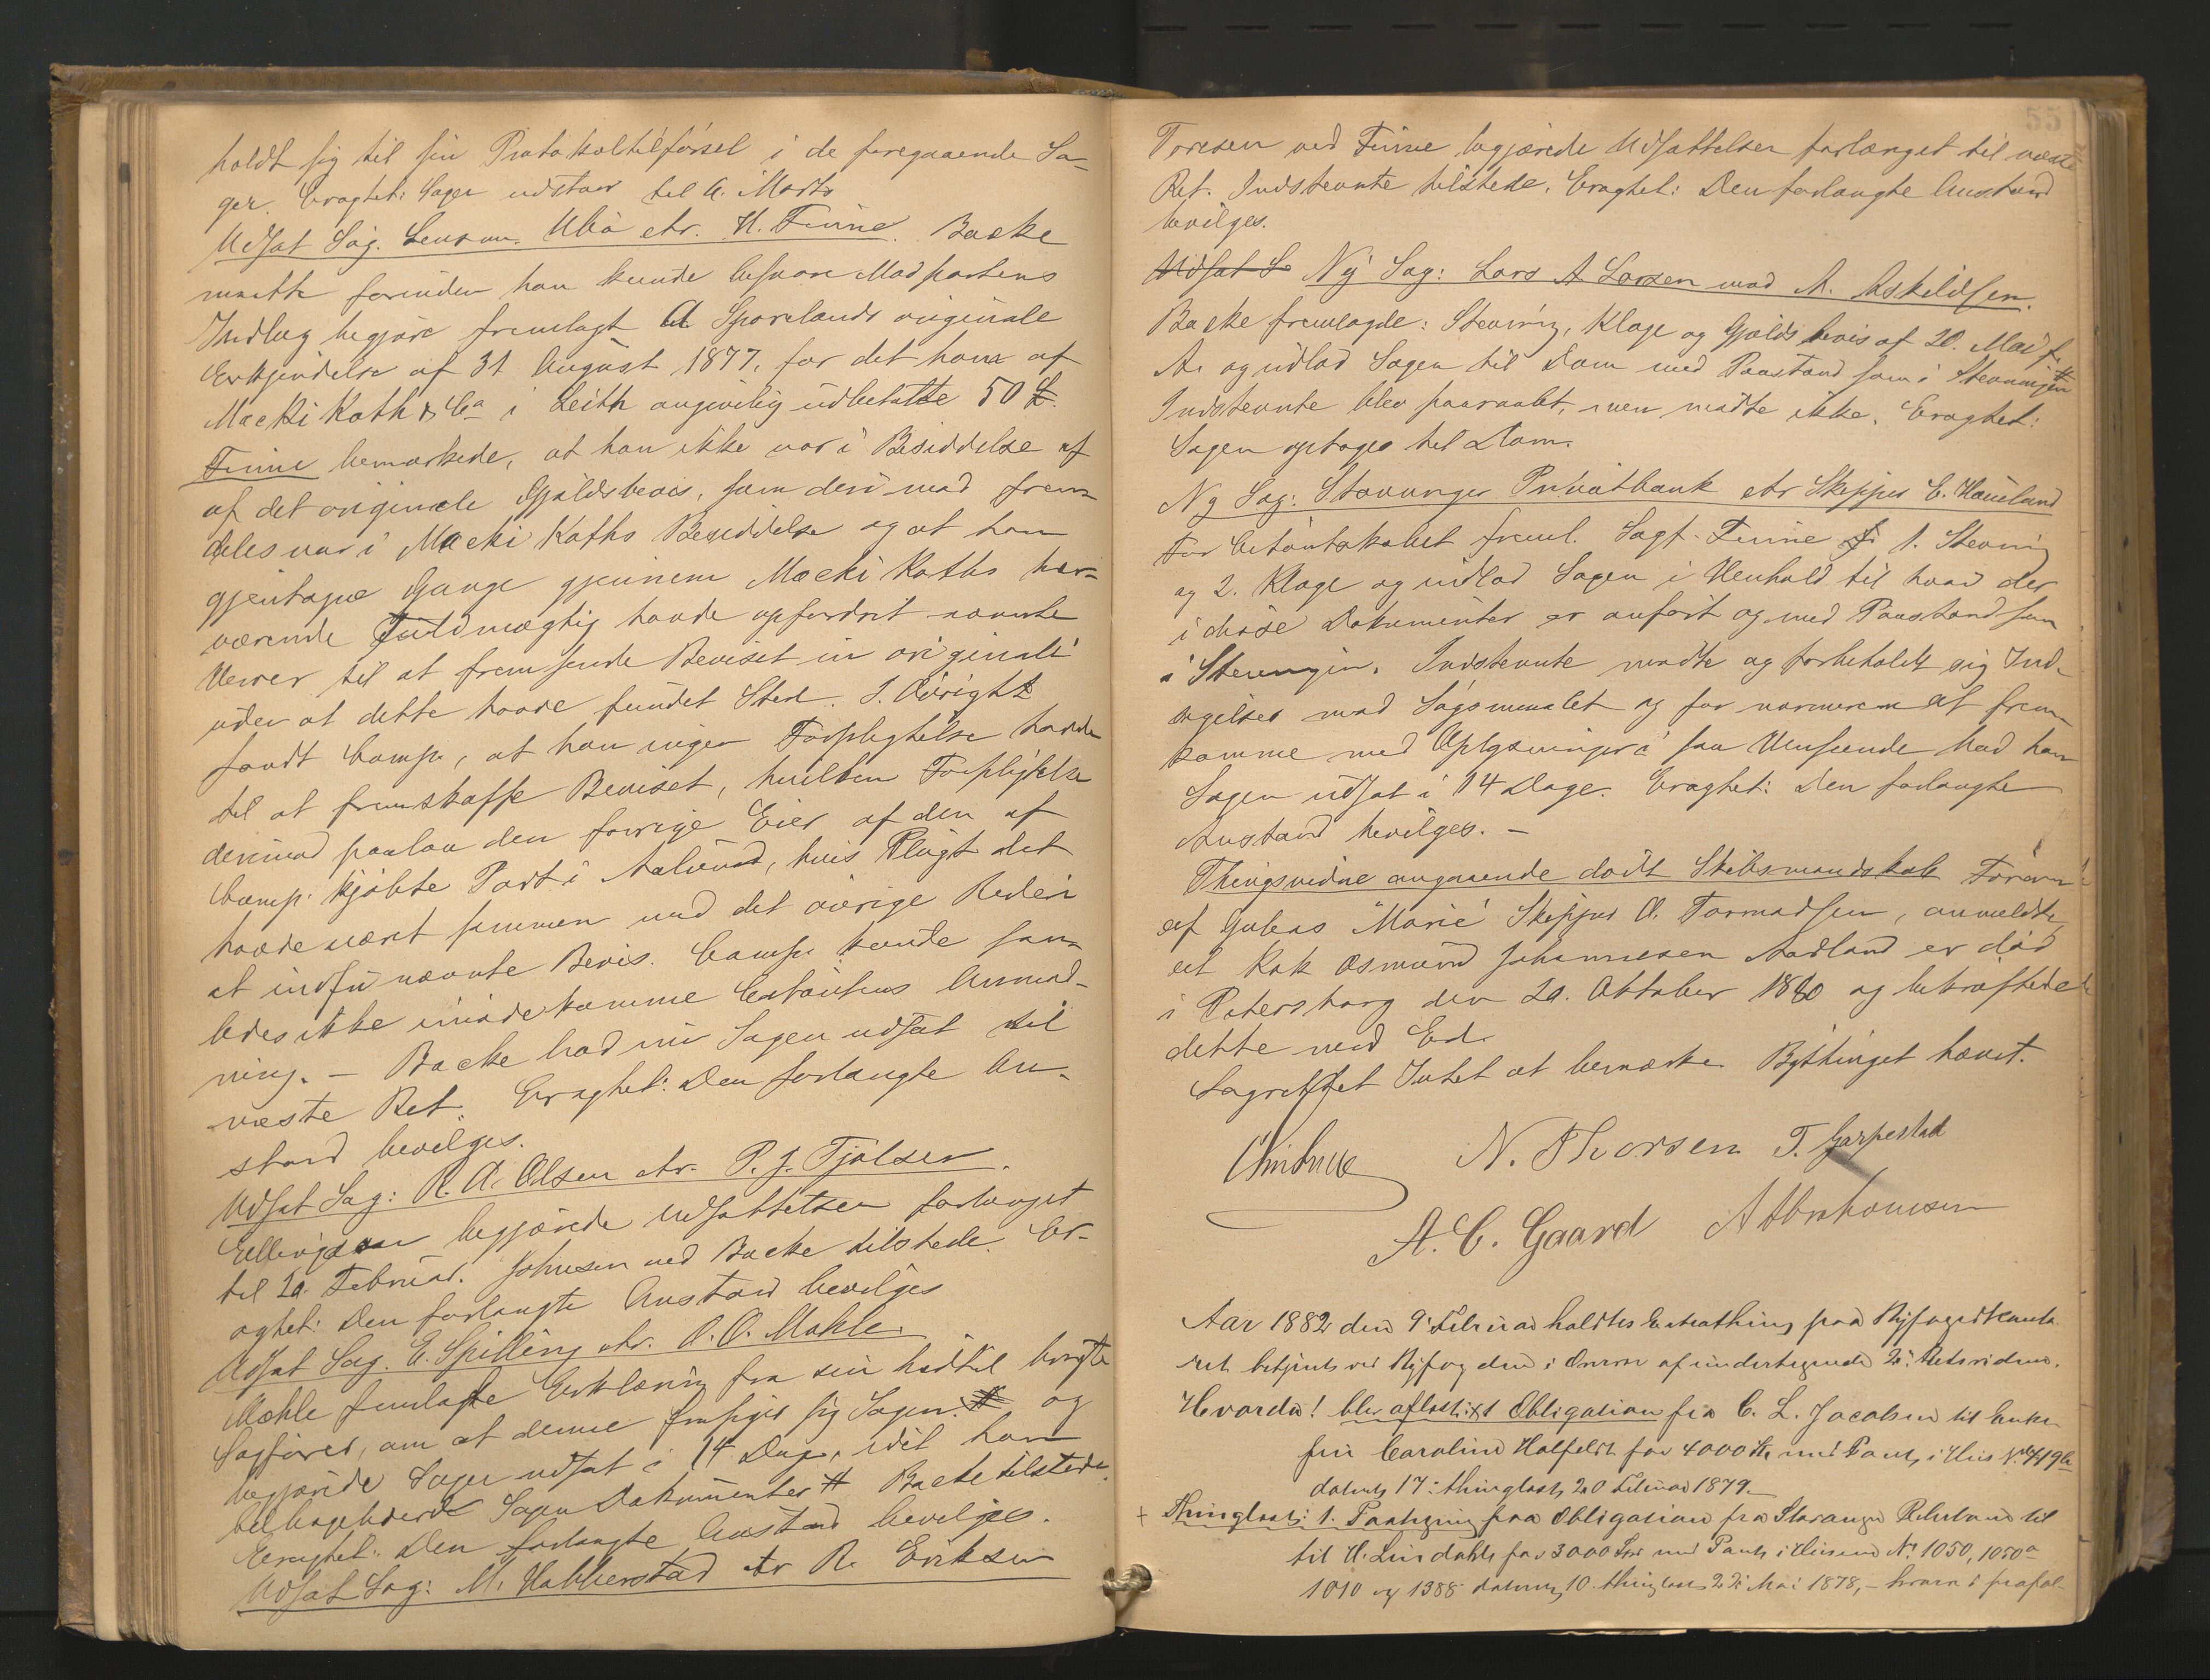 holdt sig til sin Protokoltilførsel i de foregaaende Sa-
ger. Eragtet: Sagen udstaar til 2. Marts
Udsat Sag. Lensm. Ubø ctr. H. Finne. Backe
maatte forinden han kunde besvare Modpartens
Indlæg begjære fremlagt A. Sporelands originale
Erkjendelse af 31 August 1877, for det ham af
Macki Kath & Ca i Leith angivelig udbetalte 50 £.
Finne bemærkede, at han ikke var i Besiddelse af
af det originale Gjældsbevis, som derimod frem-
deles var i Macki Kaths Besiddelse og at han
gjentagne Gange gjennem Macki Kaths her-
værende Fuldmægtig havde opfordret nævnte
Herrer til at fremsende Beviset in originali
uden at dette havde fundet Sted. I Øvrigt
fandt Comp., at han ingen Forpligtelse havde
til at fremskaffe Beviset, hvilken Forpligtelse
derimod paalaa den forrige Eier af den af
Comp. kjøbte Part i Aalesund, hvis Pligt det
havde været sammen med det øvrige Rederi
at indfri nævnte Bevis. Comp. kunde saa-
ledes ikke imødekomme Citantens Anmod-
ning. – Backe bad nu Sagen udsat til
næste Ret. Eragtet: Den forlangte An-
stand bevilges.
Udsat Sag: R. A. Olsen ctr. P. J. Tjølsen.
Ellingsen begjærede Udsættelsen forlænget
til 20. Februar. Johnsen ved Backe tilstede. Er-
agtet: Den forlangte Anstand bevilges
Udsat Sag. E. Spilling ctr. O. O. Mæhle.
Mæhle fremlagte Erklæring fra sin hidtil brugte
Sagfører, om at denne frasiger sig Sagen og
begjærede Sagen udsat i 14 Dage, idet han
tilbageleverede Sagens Dokumenter # Backe tilstede.
Eragtet: Den forlangte Anstand bevilges.
Udsat Sag: M. Habberstad ctr R. Eriksen
55
Toresen ved Finne begjærede Udsættelsen forlænget til næste
Ret. Indstevnte tilstede. Eragtet: Den forlangte Anstand
bevilges.
Udsat S Ny Sag: Lars A Larsen mod A. Askildsen.
Backe fremlagde: Stevning, Klage og Gjældsbevis af 20. Mai f.
A. og indlod Sagen til Dom med Paastand som i Stevningen
Indstevnte blev paaraabt, men mødte ikke. Eragtet:
Sagen optages til Dom.
Ny Sag: Stavanger Privatbank ctr Skipper E. Haueland
For Citantskabet freml. Sagf. Finne 1. Stevning
og 2. Klage og indlod Sagen i Henhold til hvad der
i disse Dokumenter er anført og med Paastand som
i Stevningen. Indstevnte mødte og forbeholdt sig Ind-
sigelser mod Søgsmaalet og for nærmere at frem-
komme med Oplysninger i saa Henseende bad han
Sagen udsat i 14 Dage. Eragtet: Den forlangte
Anstand bevilges. –
Thingsvidne angaaende dødt Skibsmandskab Føreren
af Galeas "Marie" Skipper O. Tormodsen, anmeldte,
at Kok Osmund Johannesen Aadland er død
i Petersborg den 20. Oktober 1880 og bekræftede
dette med Ed.
Lagrettet Intet at bemærke. Bythinget hævet.
N. Thorsen T. Garpestad
A. C. Gaard A Abrahamsen
Aar 1882 den 9 Februar holdtes Extrathing paa Byfogedkonto-
ret betjent ved Byfogden i Overvær af undertegnede 2de Retsvidner.
Hvorda! blev aflæst: Obligation fra C. L. Jacobsen til Enke-
fru Caroline Halfeldt for 4000 Kr med Pant i Hus No 419a
datert 17: thinglæst 20 Februar 1879. –
+ Thinglæst: 1. Paategning paa Obligation fra Stavanger Reberbane til
til H. Lindahls for 3000 Spd med Pant i Husene No 1050, 1050a
1010 og 1388 datert 10. thinglæst 22 Mai 1878, –